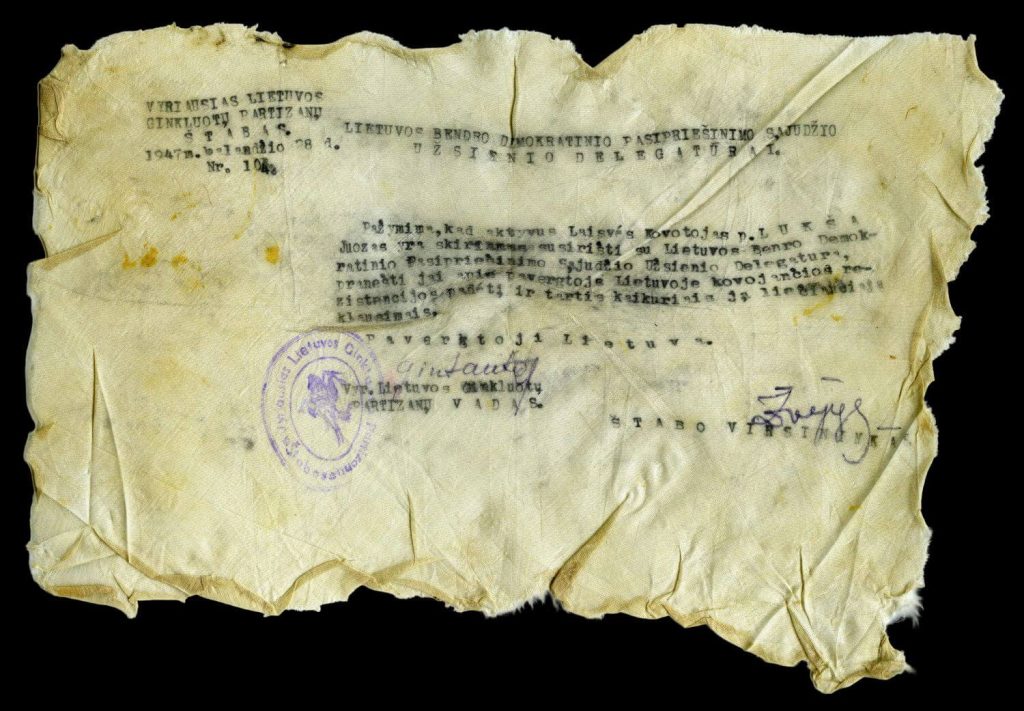 VYRIAUSIAS LIETUVOS
GINKLUOTŲ PARTIZANŲ
ŠTABAS.
1947m. balandžio 28 d.
Nr. 104
LIETUVOS BENDRO DIMOKRATINIO PASIPRIEŠINIMO SĄJUDŽIO
UŽSIENIO DELEGATŪRAI.
Pažymima, kad aktyvus Laisvės Kovotojas p. LUKŠA
Juozas yra skiriamas susirišti su Lietuvos Benro Demok-
ratinio Pasipriešinimo Sąjudžio Užsienio Delegatūra,
pranešti jai apie Pavergtoje Lietuvoje kovojančios re-
zistencijos padėtį ir tartis kaikuriais ją liečiančiais
klausimais.
Pavergtoji Lietuva.
Gintautas
Vyr. Lietuvos Ginkluotų
PARTIZANŲ VADAS.
Žvejys
ŠTABO VIRŠININKAS
Vyriausias Lietuvos Ginkl